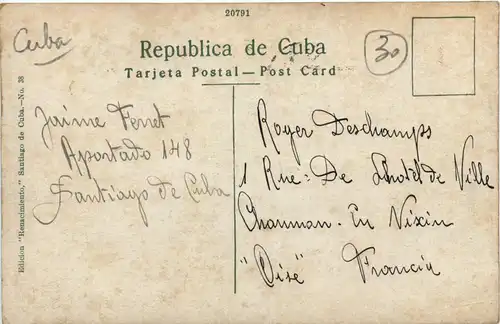 20791
Cuba
30
Republica de Cuba
Tarjeta Postal — Post Card
Edicion "Renacimiento," Santiago de Cuba.—No. 38
Jaime Ferret
Apartado 148
Santiago de Cuba
Roger Deschamps
1 Rue: De Lhotel de Ville
Chaumon-En Vixin
"Oise" Francia